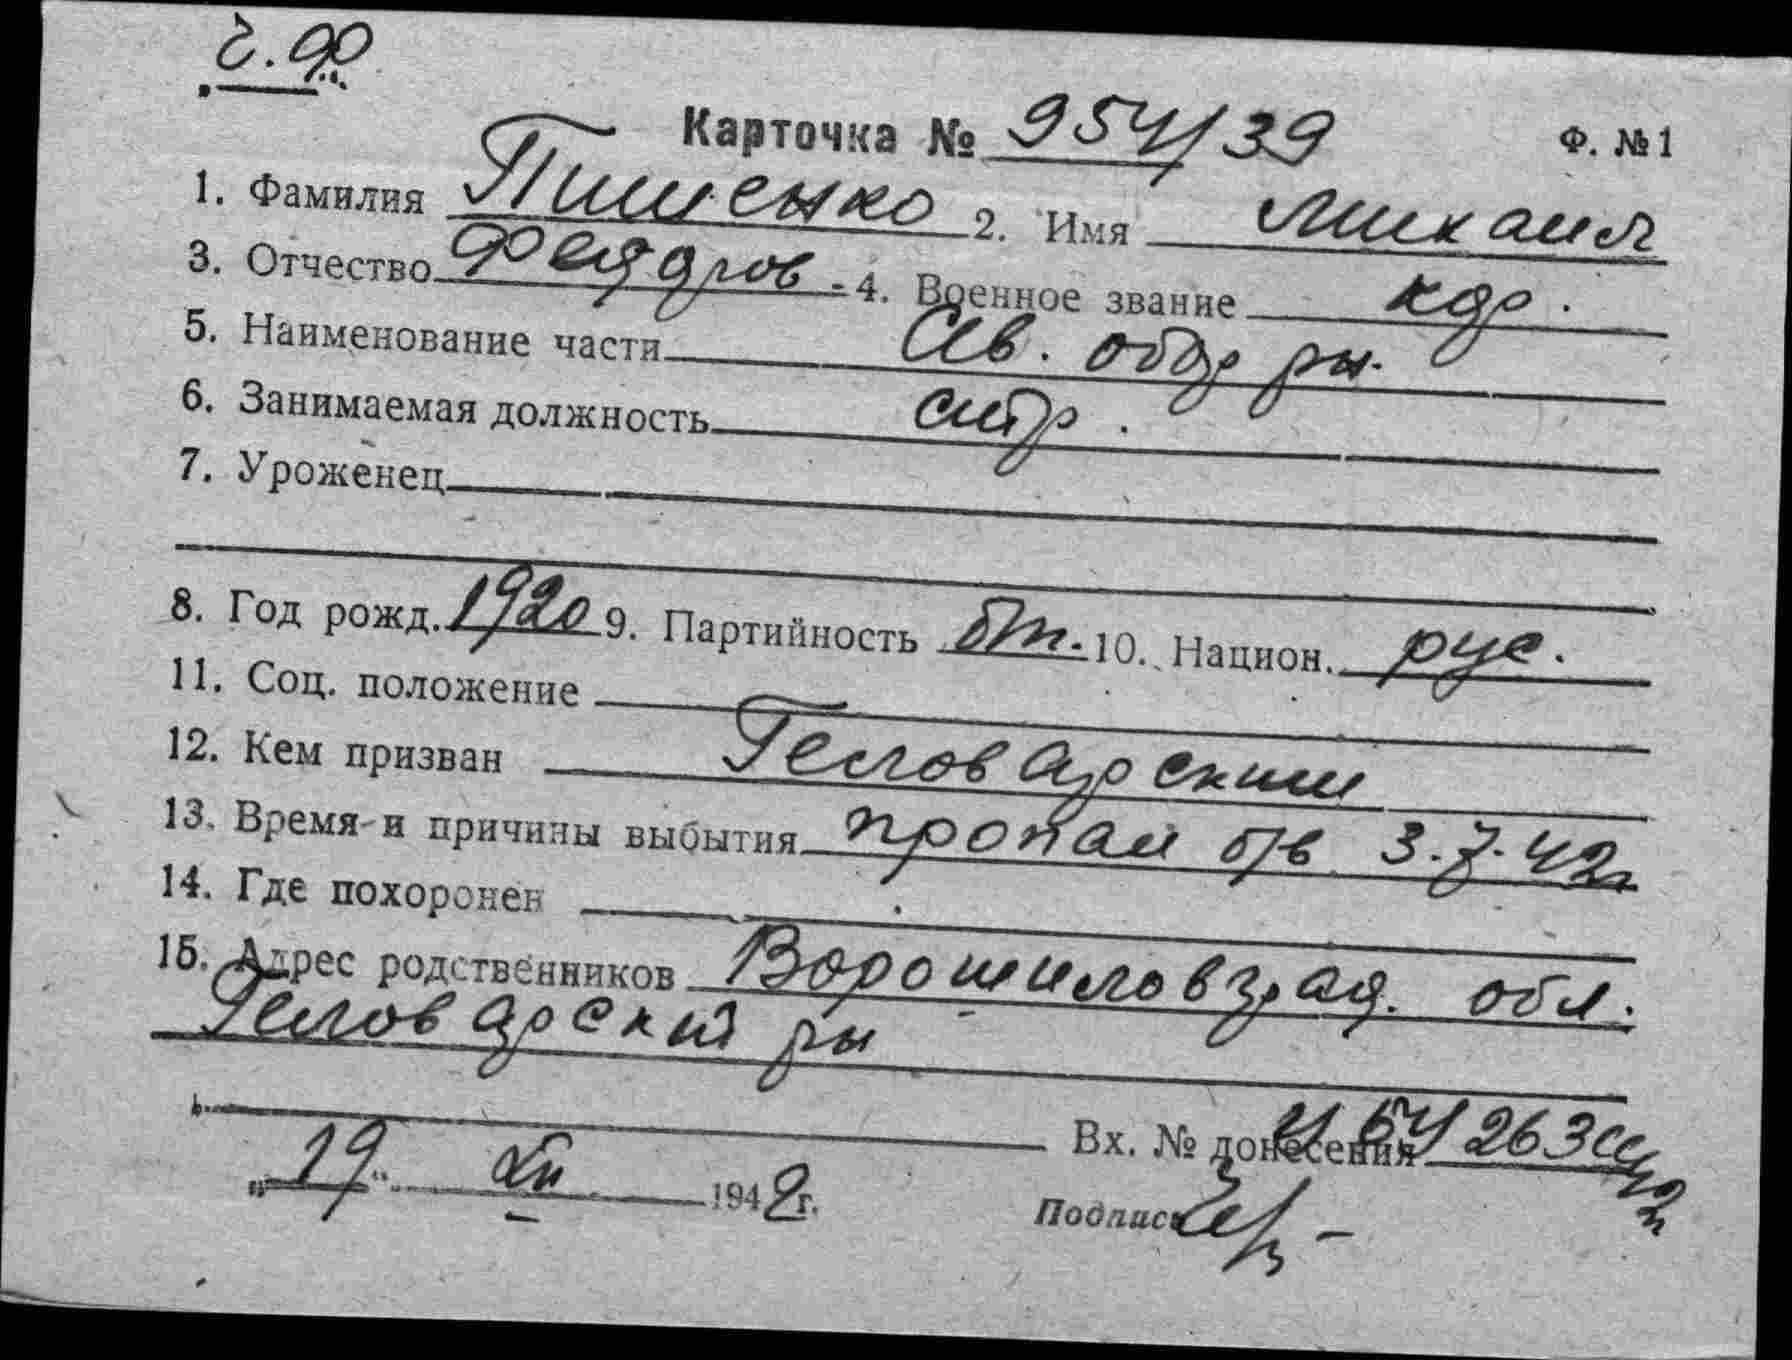 Ч.Ф
Карточка № 954/39 Ф. №1
1. Фамилия Пишенко 2. Имя Михаил
3. Отчество Федоров. 4. Военное звание кр.
5. Наименование части Сев. обор р-н.
6. Занимаемая должность стр.
7. Уроженец
8. Год рожд. 1920 9. Партийность б/п. 10. Национ. рус.
11. Соц. положение
12. Кем призван
13. Время и причины выбытия пропал б/в 3.7.42г
14. Где похоронен
15. Адрес родственников Ворошиловград. обл.
р-н
Вх. № донесения 263
„19“ 1942г.
Подпись